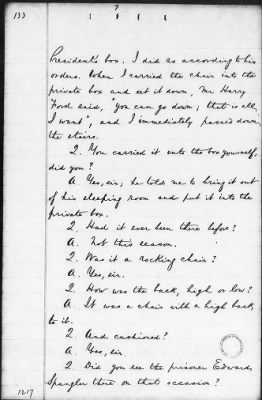 133
President's box. I did as according to his
orders. When I carried the chair into the
private box and set it down, Mr Harry
Ford said, "You can go down; that is all
I want", and I immediately passed down
the stairs.
Q. You carried it into the box yourself,
did you?
A. Yes, sir; he told me to bring it out
of his sleeping room and put it into the
private box.
Q. Had it ever been there before?
A. Not this season.
Q. Was it a rocking chair?
A. Yes, sir.
Q. How was the back, high or low?
A. It was a chair with a high back
to it.
Q. And cushioned?
A. Yes, sir.
Q. Did you see the prisoner Edward
Spangler there on that occasion?
1217